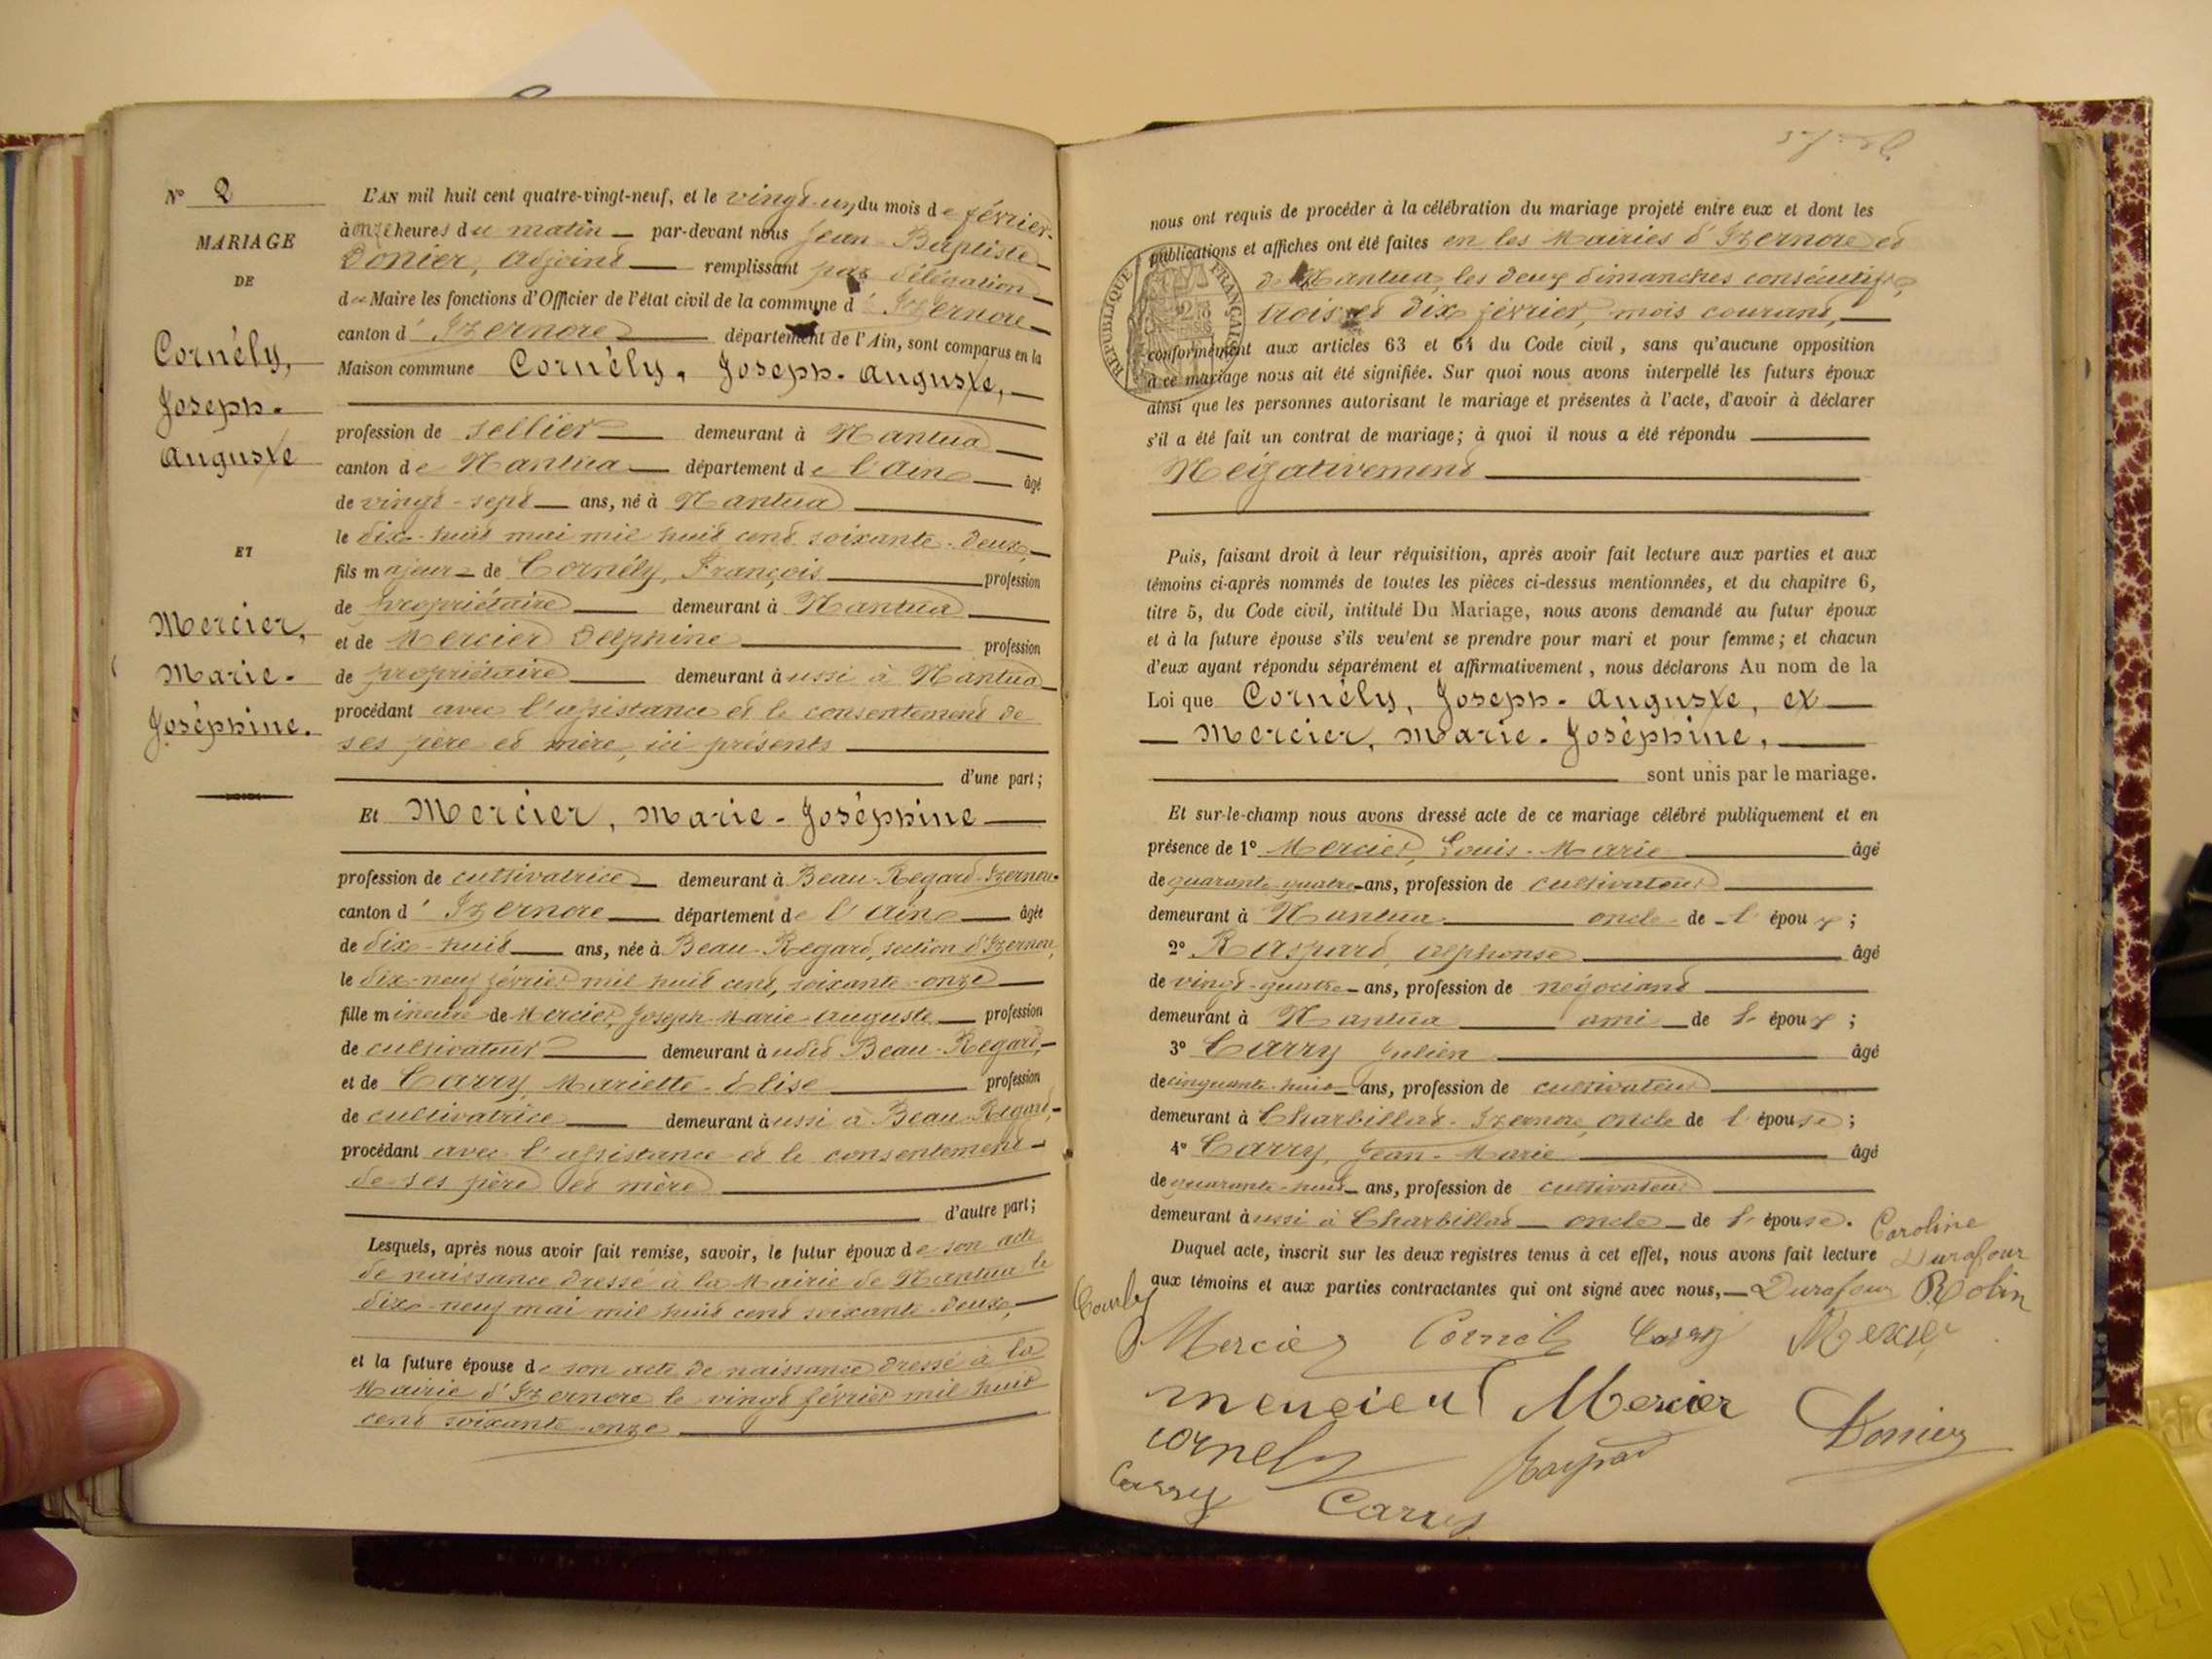 N° 2
MARIAGE
DE
Cornély,
Joseph-
Auguste
ET
Mercier,
Marie-
Joséphine.
L'AN mil huit cent quatre-vingt-neuf, et le vingt-un du mois de février
à onze heures du matin — par-devant nous Jean-Baptiste
Donier, adjoint — remplissant par délégation
du Maire les fonctions d'Officier de l'état civil de la commune d'Izernore
canton d'Izernore — département de l'Ain, sont comparus en la
Maison commune Cornély, Joseph-Auguste,
profession de sellier — demeurant à Nantua
canton de Nantua — département de l'Ain — âgé
de vingt-sept — ans, né à Nantua
le dix-huit mai mil huit cent soixante-deux,
fils majeur de Cornély, François — profession
de propriétaire — demeurant à Nantua
et de Mercier Delphine — profession
de propriétaire — demeurant aussi à Nantua
procédant avec l'assistance et le consentement de
ses père et mère, ici présents
d'une part;
Et Mercier, Marie-Joséphine
profession de cultivatrice — demeurant à Beau-Regard-Izernore
canton d'Izernore — département de l'Ain — âgée
de dix-huit — ans, née à Beau-Regard, section d'Izernore,
le dix-neuf février mil huit cent, soixante-onze
fille mineure de Mercier, Joseph-Marie-Auguste — profession
de cultivateur — demeurant audit Beau-Regard,
et de Carry, Mariette-Elise — profession
de cultivatrice — demeurant aussi à Beau-Regard,
procédant avec l'assistance et le consentement
de ses père et mère
d'autre part;
Lesquels, après nous avoir fait remise, savoir, le futur époux de son acte
de naissance dressé à la Mairie de Nantua le
dix-neuf mai mil huit cent soixante-deux,
et la future épouse de son acte de naissance dressé à la
Mairie d'Izernore le vingt février mil huit
cent soixante-onze
nous ont requis de procéder à la célébration du mariage projeté entre eux et dont les
publications et affiches ont été faites en les Mairies d'Izernore et
de Nantua, les deux dimanches consécutifs,
trois et dix février, mois courant,
conformément aux articles 63 et 64 du Code civil, sans qu'aucune opposition
à ce mariage nous ait été signifiée. Sur quoi nous avons interpellé les futurs époux
ainsi que les personnes autorisant le mariage et présentes à l'acte, d'avoir à déclarer
s'il a été fait un contrat de mariage; à quoi il nous a été répondu
Négativement
RÉPUBLIQUE FRANÇAISE
Puis, faisant droit à leur réquisition, après avoir fait lecture aux parties et aux
témoins ci-après nommés de toutes les pièces ci-dessus mentionnées, et du chapitre 6,
titre 5, du Code civil, intitulé Du Mariage, nous avons demandé au futur époux
et à la future épouse s'ils veulent se prendre pour mari et pour femme; et chacun
d'eux ayant répondu séparément et affirmativement, nous déclarons Au nom de la
Loi que Cornély, Joseph-Auguste, et
Mercier, Marie-Joséphine,
sont unis par le mariage.
Et sur-le-champ nous avons dressé acte de ce mariage célébré publiquement et en
présence de 1° Mercier, Louis-Marie — âgé
de quarante-quatre ans, profession de cultivateur
demeurant à Nantua — oncle de l'époux;
2° Raspard, Alphonse — âgé
de vingt-quatre ans, profession de négociant
demeurant à Nantua — ami de l'époux;
3° Carry Julien — âgé
de cinquante-huit ans, profession de cultivateur
demeurant à Charbillat-Izernore, oncle de l'épouse;
4° Carry, Jean-Marie — âgé
de quarante-huit ans, profession de cultivateur
demeurant aussi à Charbillat — oncle de l'épouse.
Duquel acte, inscrit sur les deux registres tenus à cet effet, nous avons fait lecture
aux témoins et aux parties contractantes qui ont signé avec nous,
Caroline
Durafour
Durafour Robin
Mercier Cornély Carry Mercier
Mercier Donier
cornely Raspard
Carry Carry